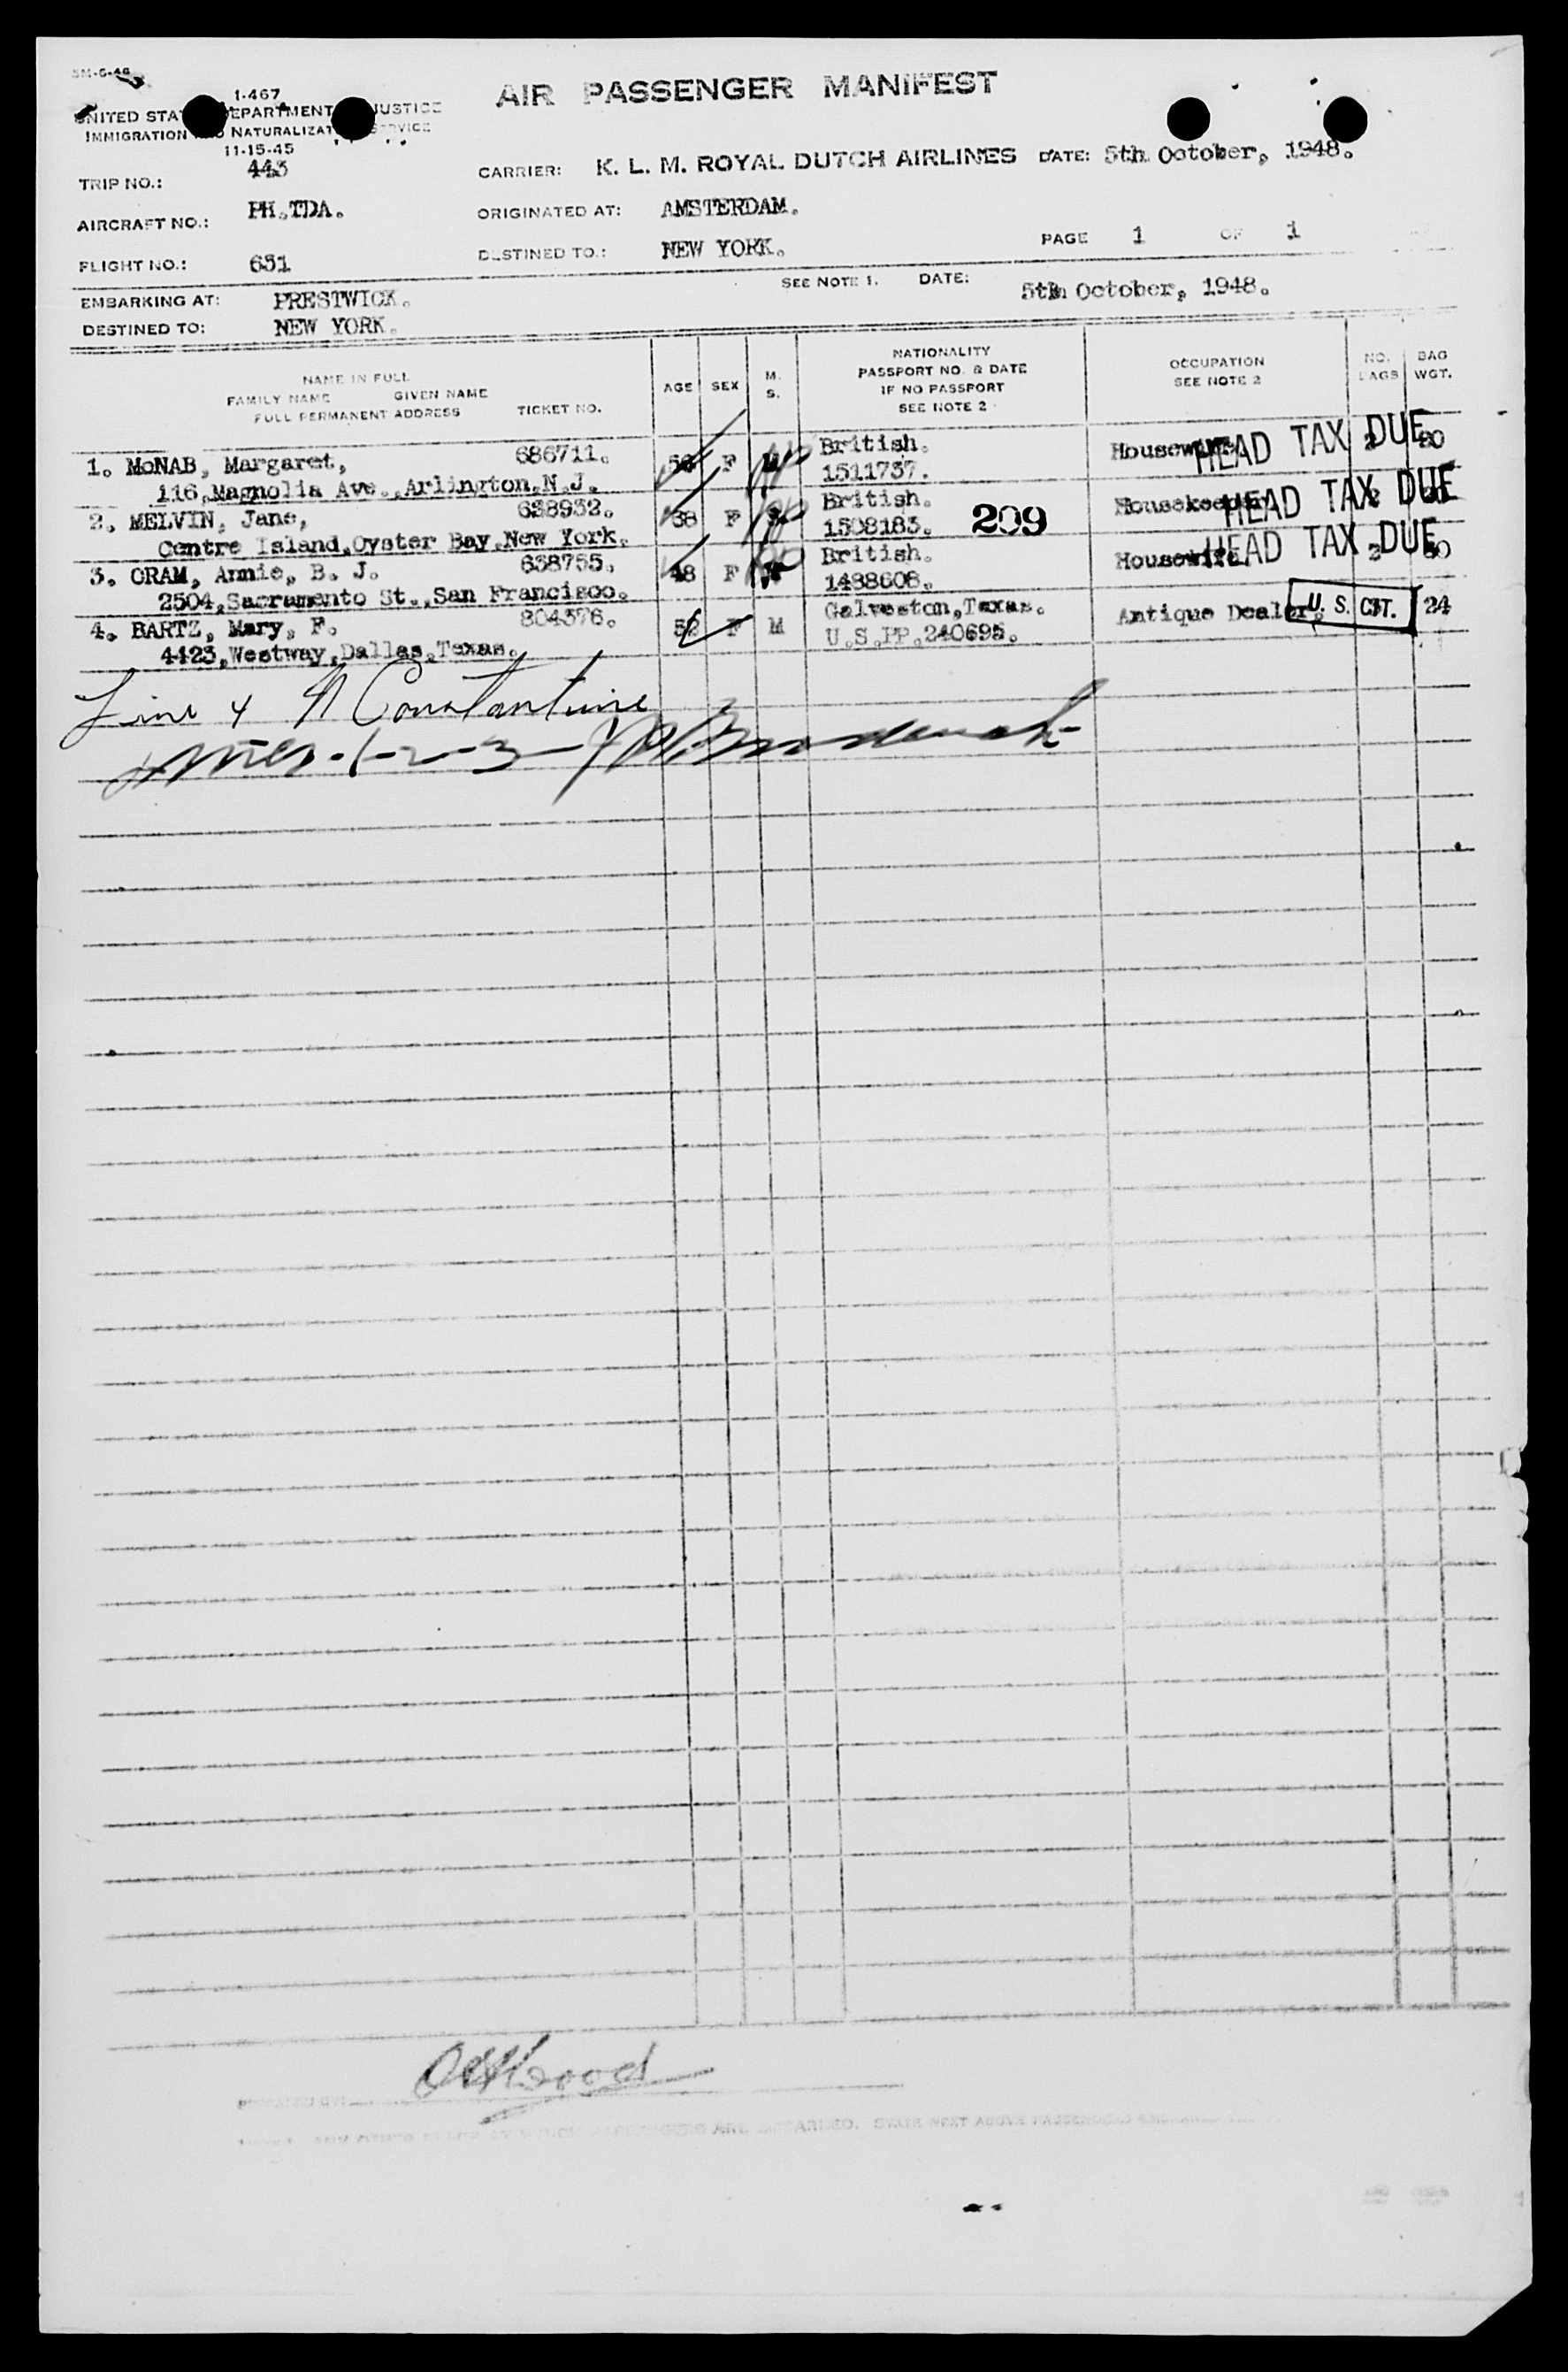 I-467
AIR PASSENGER MANIFEST
UNITED STATES DEPARTMENT OF JUSTICE
IMMIGRATION AND NATURALIZATION SERVICE
11-15-45
TRIP NO.: 443 CARRIER: K. L. M. ROYAL DUTCH AIRLINES DATE: 5th October, 1948.
AIRCRAFT NO.: PH.TDA. ORIGINATED AT: AMSTERDAM.
FLIGHT NO.: 651 DESTINED TO.: NEW YORK. PAGE 1 OF 1
EMBARKING AT: PRESTWICK. SEE NOTE 1. DATE: 5th October, 1948.
DESTINED TO: NEW YORK.
NAME IN FULL
FAMILY NAME GIVEN NAME
FULL PERMANENT ADDRESS TICKET NO. AGE SEX M. S. NATIONALITY PASSPORT NO. & DATE IF NO PASSPORT SEE NOTE 2 OCCUPATION SEE NOTE 2 NO. BAGS BAG WGT.
1. McNAB, Margaret, 686711. F M British. Housewife. HEAD TAX DUE 2 20
116, Magnolia Ave., Arlington, N.J. 1511737.
2. MELVIN, Jane, 638932. 38 F S British. Housekeeper. HEAD TAX DUE 2
Centre Island, Oyster Bay, New York. 1508183. 209
3. ORAM, Annie, B. J. 638755. 48 F British. Housewife. HEAD TAX DUE 2
2504, Sacramento St., San Francisco. 1488608.
4. BARTZ, Mary, F. 804376. 52 F M Galveston, Texas. Antique Dealer. U. S. CIT. 24
4423, Westway, Dallas, Texas. U.S.PP.240695.
Line 4 N Constantine
Lines-1-2-3